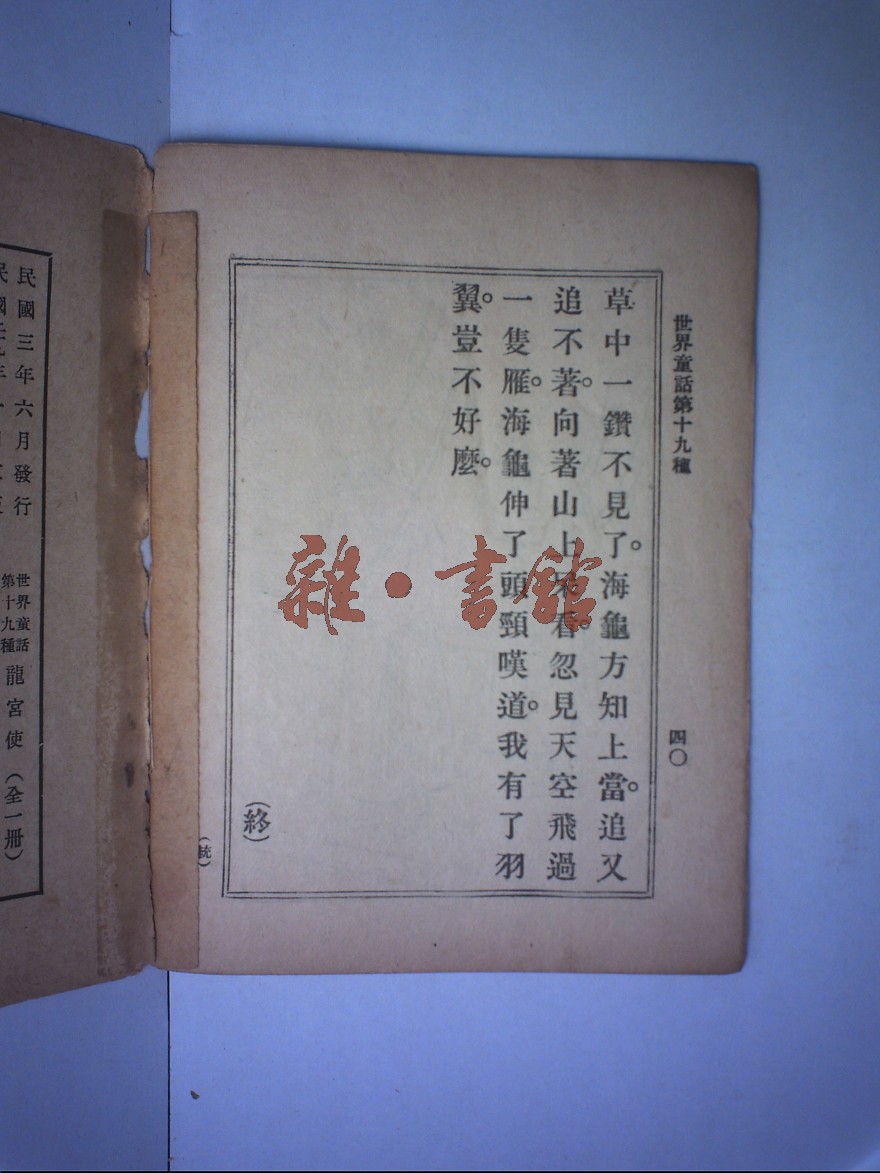 世界童話第十九種
四〇
草中一鑽不見了。海龜方知上當。追又
追不著。向著山上呆看。忽見天空飛過
一隻雁。海龜伸了頭頸嘆道。我有了羽
翼。豈不好麼。
（終）
（統）
雜·書館
民國三年六月發行
世界童話
第十九種
龍宮使（全一冊）